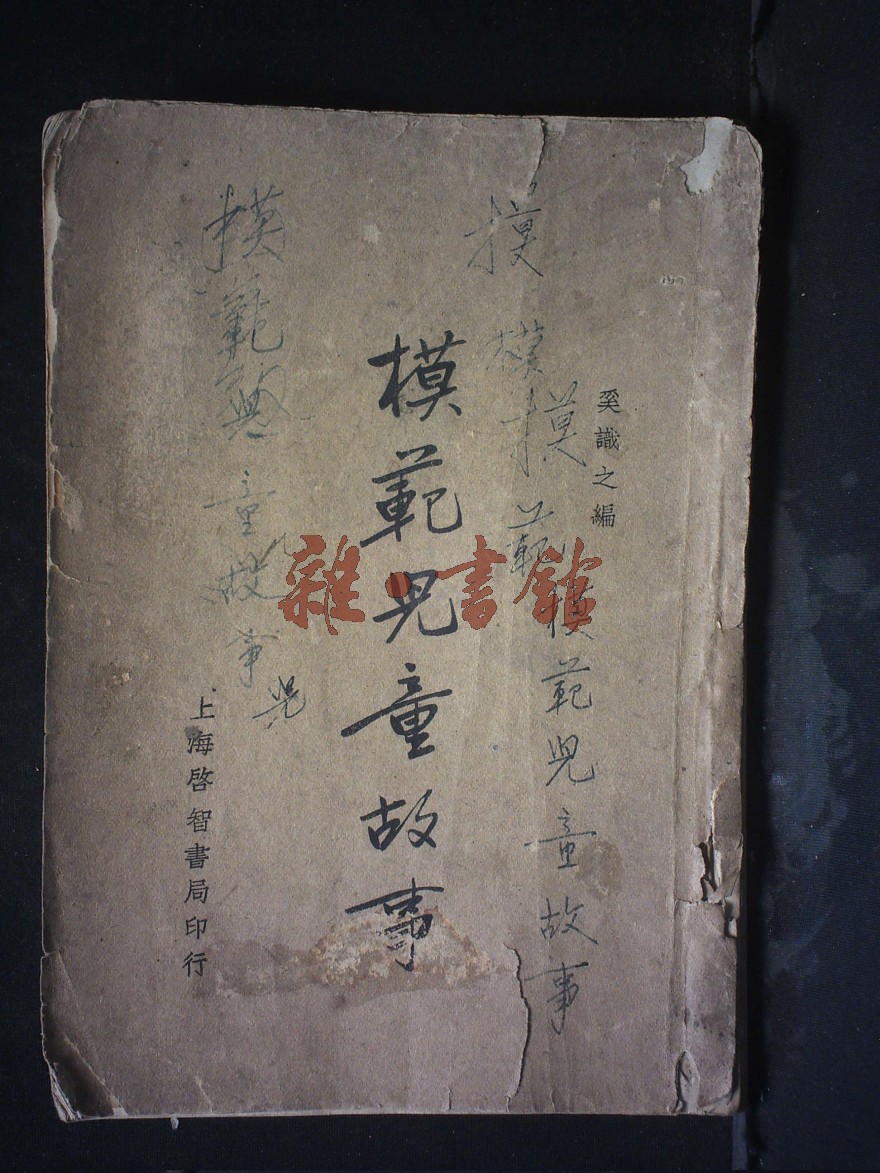 奚識之編
模範兒童故事
上海啓智書局印行
摸
模
摸範
模範兒童故事
模範兒童故事
兒
雜·書館